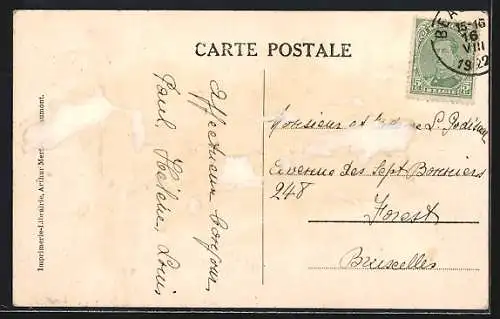 CARTE POSTALE
BEA
15-16
16
VIII
1922
Affectueux bonjour,
Paul, Hélène, Louis
Monsieur et L. Godinay
Avenue des Sept Bonniers
248
Forest
Bruxelles
Imprimerie-Librairie, Arthur Mer
umont.